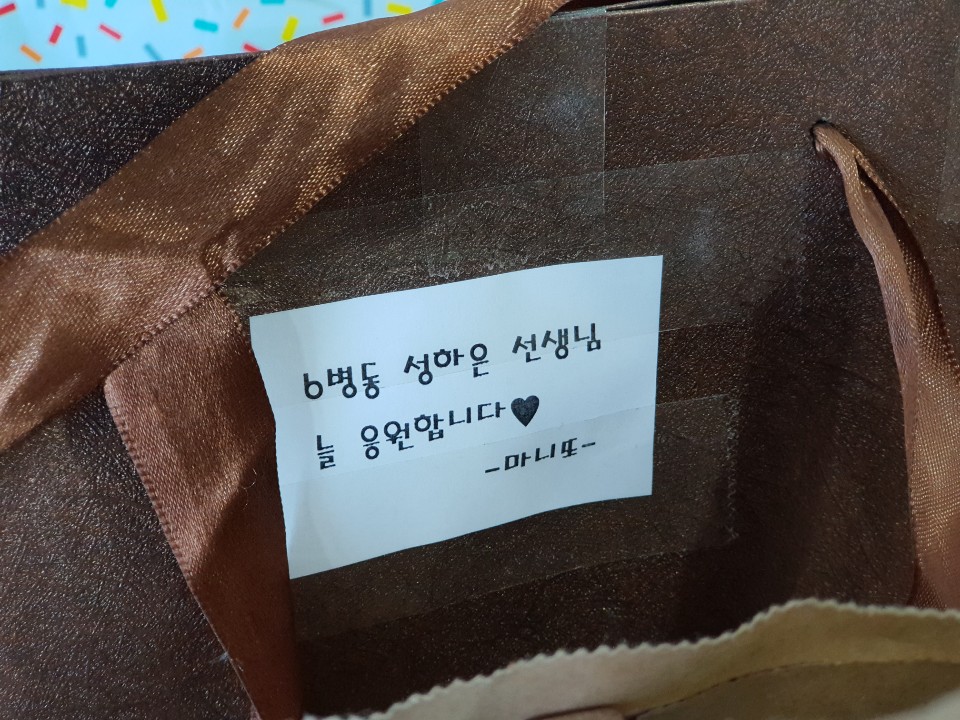 6병동 성하은 선생님
늘 응원합니다♥
-마니또-